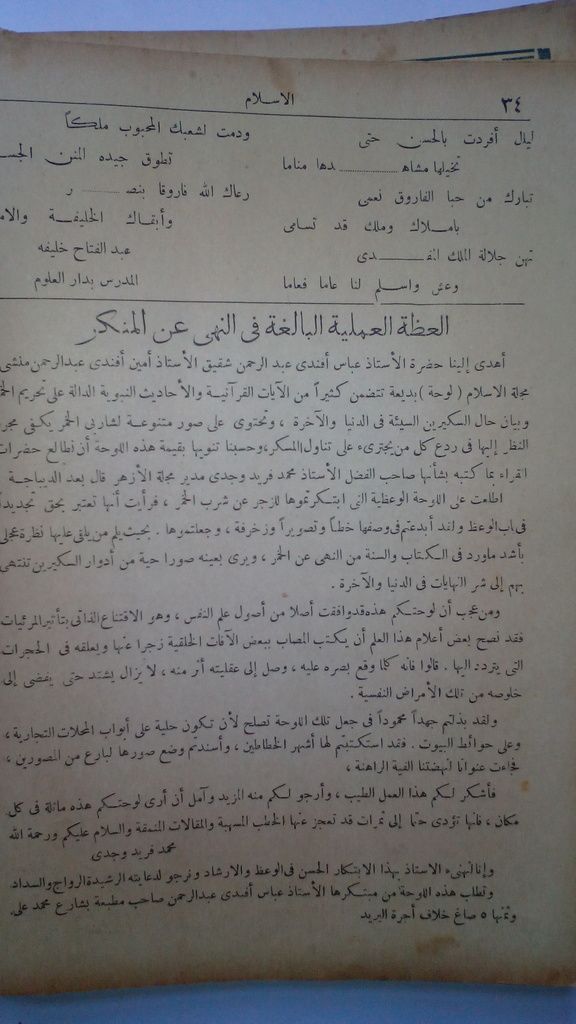 ٣٤ الاسلام
ليال أفردت بالحسن حتى ودمت لشعبك المحبوب ملكاً
تخيلها مشاهـدها مناما تطوق جيده المنن
تبارك من حبا الفاروق نعمى رعاك الله فاروقا بنصـر
بامـلاك وملك قد تسامى وأبقـاك الخليفـة
تهن جلالة الملك المفـدى عبد الفتاح خليفه
وعش واسـلم لنا عاما فعاما المدرس بدار العلوم
العظة العملية البالغة فى النهى عن المنكر
أهدى إلينا حضرة الأستاذ عباس أفندى عبد الرحمن شقيق الأستاذ أمين أفندى عبدالرحمن منشىء
مجلة الاسلام ( لوحة ) بديعة تتضمن كثيراً من الآيات القرآنيـة والأحاديث النبوية الدالة على تحريم الخمر
وبيان حال السكيرين السيئة فى الدنيا والآخرة ، وتحتوى على صور متنوعـة لشاربى الخمر يكفى مجرد
النظر إليها فى ردع كل من يجترىء على تناول المسكر، وحسبنا تنويها بقيمة هذه اللوحة أن نطالع حضرات
القراء بما كتبه بشأنها صاحب الفضل الأستاذ محمد فريد وجدى مدير مجلة الأزهر قال بعد الديباجـة
اطلعت على اللوحة الوعظية التى ابتـكرتموها للزجر عن شرب الخمر ، فرأيت أنها تعتبر بحق تجديداً
فى باب الوعظ ولقد أبدعتم فى وصفها خطاً وتصويراً وزخرفة ، وجعلتموها . بحيث يلم من يلقى عليها نظرة عجلى
بأشد ماورد فى الـكتاب والسنة من النهى عن الخمر ، ويرى بعينه صورا حية من أدوار السكيرين تنتهى
بهم إلى شر النهايات فى الدنيا والآخرة .
ومن عجب أن لوحتـكم هذه قد وافقت أصلا من أصول علم النفس ، وهو الاقتناع الذاتى بتأثير المرئيات
فقد نصح بعض أعلام هذا العلم أن يكتب المصاب ببعض الآفات الخلقية زجرا عنها ويعلقه فى الحجرات
التى يتردد اليها . قالوا فانه كلما وقع بصره عليه ، وصل إلى عقليته أثر منه ، لا يزال يشتد حتى يفضى إلى
خلوصه من تلك الأمراض النفسية .
ولقد بذلتم جهداً محموداً فى جعل تلك اللوحة تصلح لأن تـكون حلية على أبواب المحلات التجارية ،
وعلى حوائط البيوت . فقد استكتبتم لها أشهر الخطاطين ، وأسندتم وضع صورها لبارع من المصورين ،
فجاءت عنوانا لنهضتنا الفنية الراهنة ،
فأشكر لـكم هذا العمل الطيب ، وأرجو لـكم منه المزيد وآمل أن أرى لوحتـكم هذه ماثلة فى كل
مكان ، فانها تؤدى حتما إلى ثمرات قد تعجز عنها الخطب المسهبة والمقالات المنمقة والسلام عليكم ورحمة الله
محمد فريد وجدى
وإنا لنهنىء الاستاذ بهذا الابتكار الحسن فى الوعظ والارشاد ونرجو لدعايته الرشيدة الرواج والسداد
وتطلب هذه اللوحة من مبتـكرها الأستاذ عباس أفندى عبدالرحمن صاحب مطبعة بشارع محمد على
وثمنها ٥ صاغ خلاف أجرة البريد